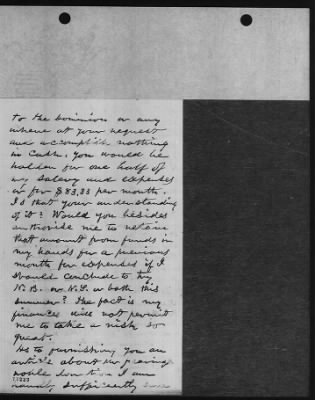 to the Dominion or any
where at your request
and accomplish nothing
in Cash, you would be
holden for one half of
my salary and expenses
or for $83,33 per month.
Is that your understanding
of it? Would you besides
authorize me to retain
that amount from funds in
my hands for a previous
month for expenses if I
should conclude to try
N.B. or N.S. or both this
summer? The fact is my
finances will not permit
me to take a risk so
great.
As to furnishing you an
article about the
noble I am
hardly sufficiently